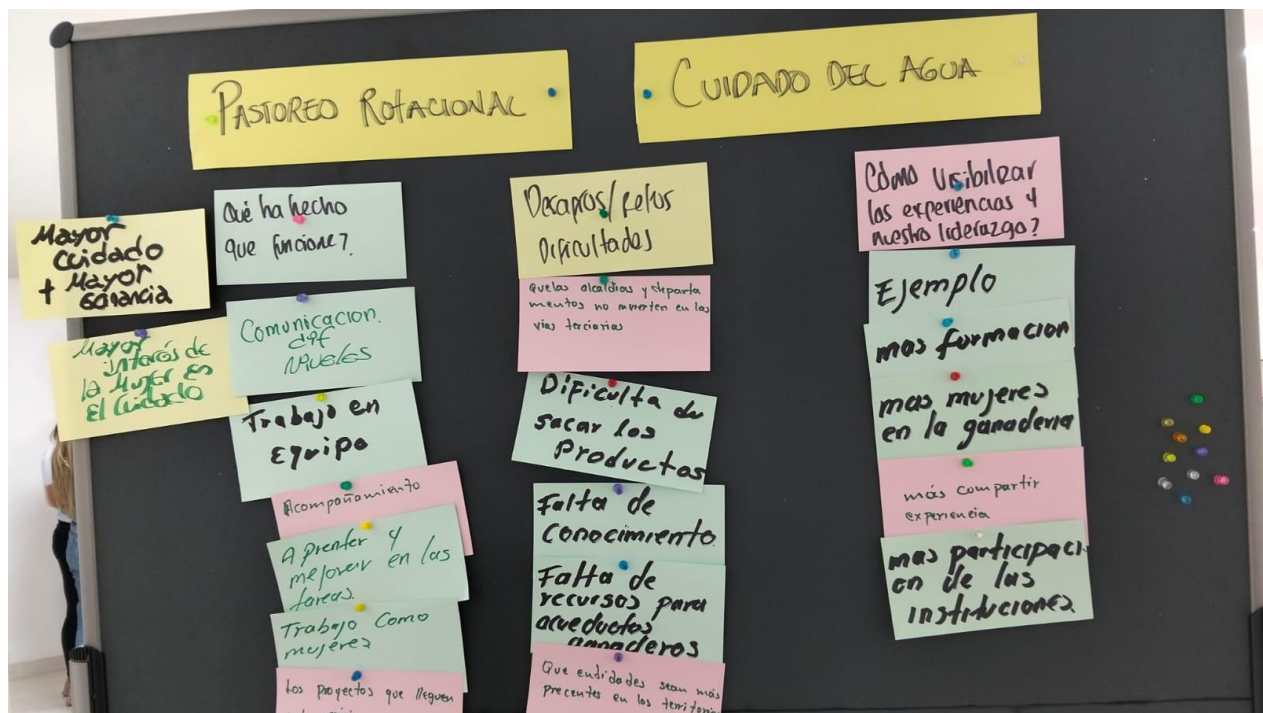 PASTOREO ROTACIONAL
CUIDADO DEL AGUA
Mayor
Cuidado
+ Mayor
Ganancia
Mayor
interés de
la Mujer en
El Cuidado
Qué ha hecho
que funcione?
Comunicacion.
dif
Niveles
Trabajo en
Equipo
Acompañamiento
Aprenfer y
mejorar en las
tareas.
Trabajo Como
mujeres
Los Proyectos que lleguen
Dificultades
Quelas alcaldias y departa
mentos no invierten en las
vias terciarias
Dificulta de
sacar los
Productos
Falta de
Conocimiento.
Falta de
recursos para
acueductos
ganaderos
Que entidades sean más
precentes en los territorios
Cómo Visibilizar
las experiencias y
nuestro liderazgo?
Ejemplo
mas formacion
mas mujeres
en la ganaderia
más compartir
experiencia
mas participaci
on de las
instituciones.